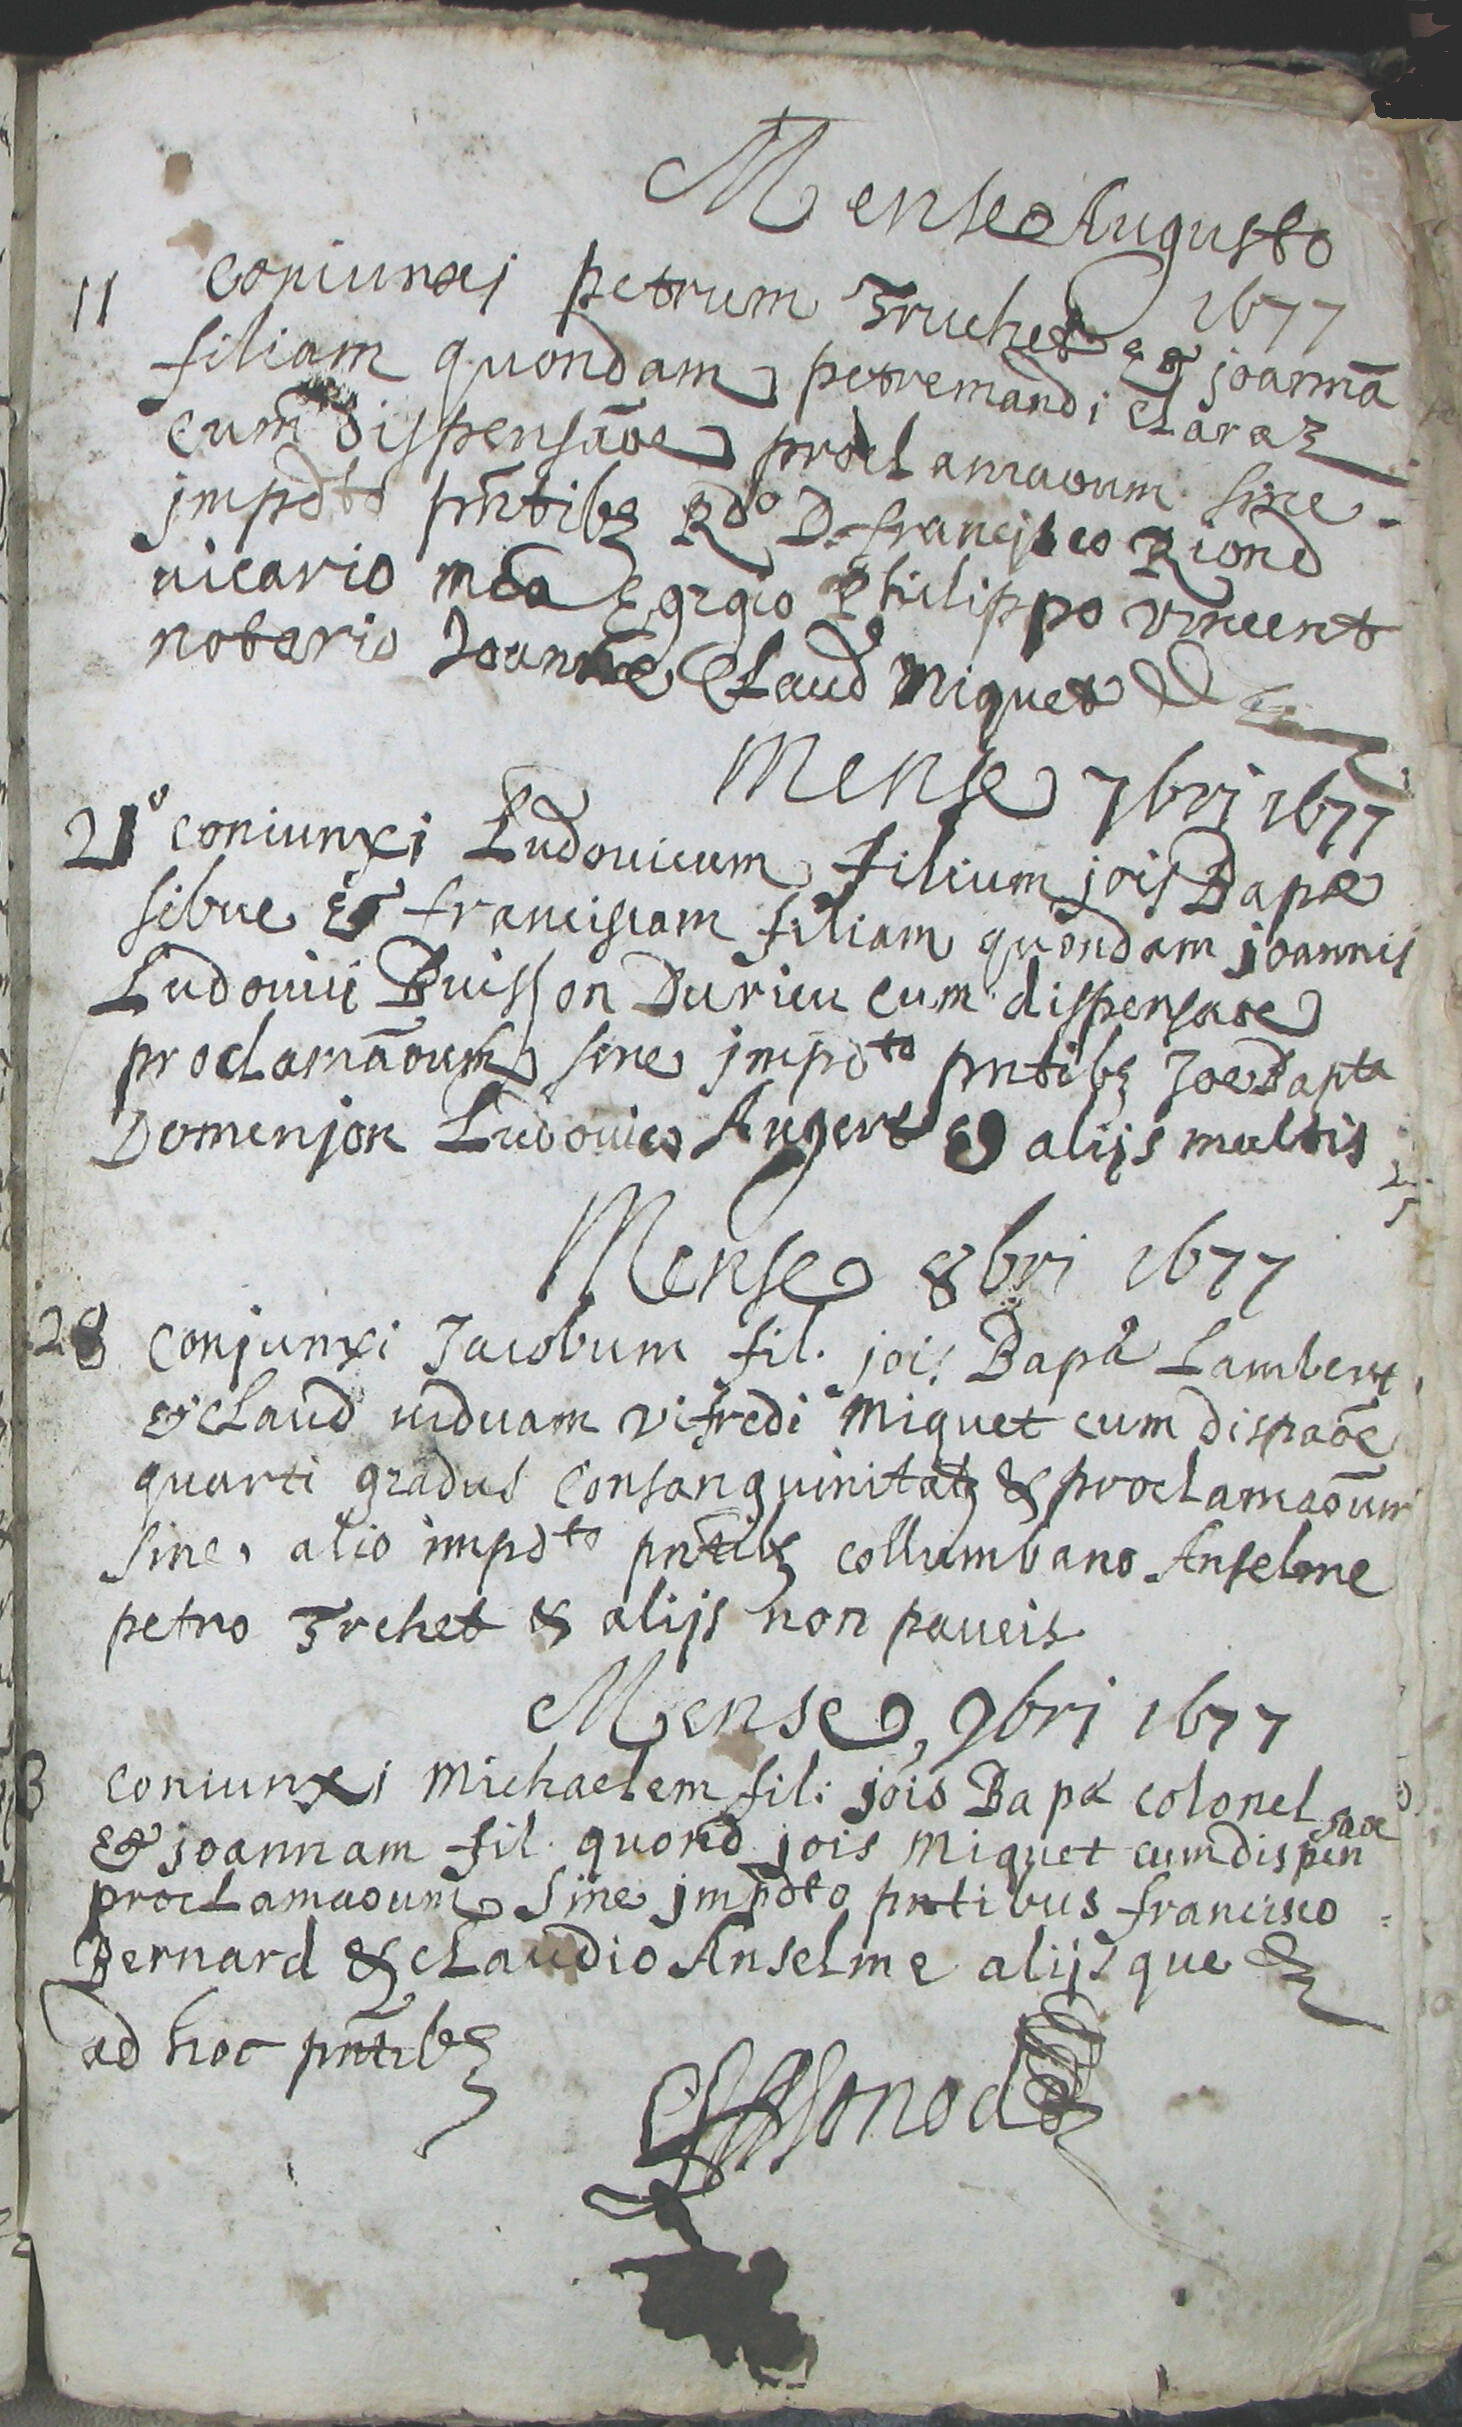 Mense Augusto
1677
11 coniunxi petrum Truchet et joannā
filiam quondam petremandi Claraz
cum dispensāoe proclamaoum sine
jmpdto pn̄tibz Rdo D. francisco Riond
uicario mea Egrgio Philippo vincent
notario Joanne Claud Miquet
Mense 7bri 1677
21o coniunxi Ludouicum filium jois Bapæ
sibue et franciscam filiam quondam joannis
Ludouici Buisson Duricu cum dispensaoe
proclamāoum sine jmpdto pntibz Joe Bapta
Domenjon Ludouico Angert et alijs multis
Mense 8bri 1677
28 conjunxi Jacobum fil. jois Bapā Lambert
et Claud uiduam vifredi Miquet cum dispaōe
quarti gradus consanguinitatz & proclamaoum
sine alio impdto pntibz collumbano Anselme
petro Trchet & alijs non paucis.
Mense 9bri 1677
3 coniunxi Michaelem fil: jois Bapæ colonel
& joannam fil. quond jois Miquet cum dispen
saoe
proclamaoum sine jmpdto pntibus francisco
Bernard & Claudio Anselme alijsque
ad hoc pn̄tibz